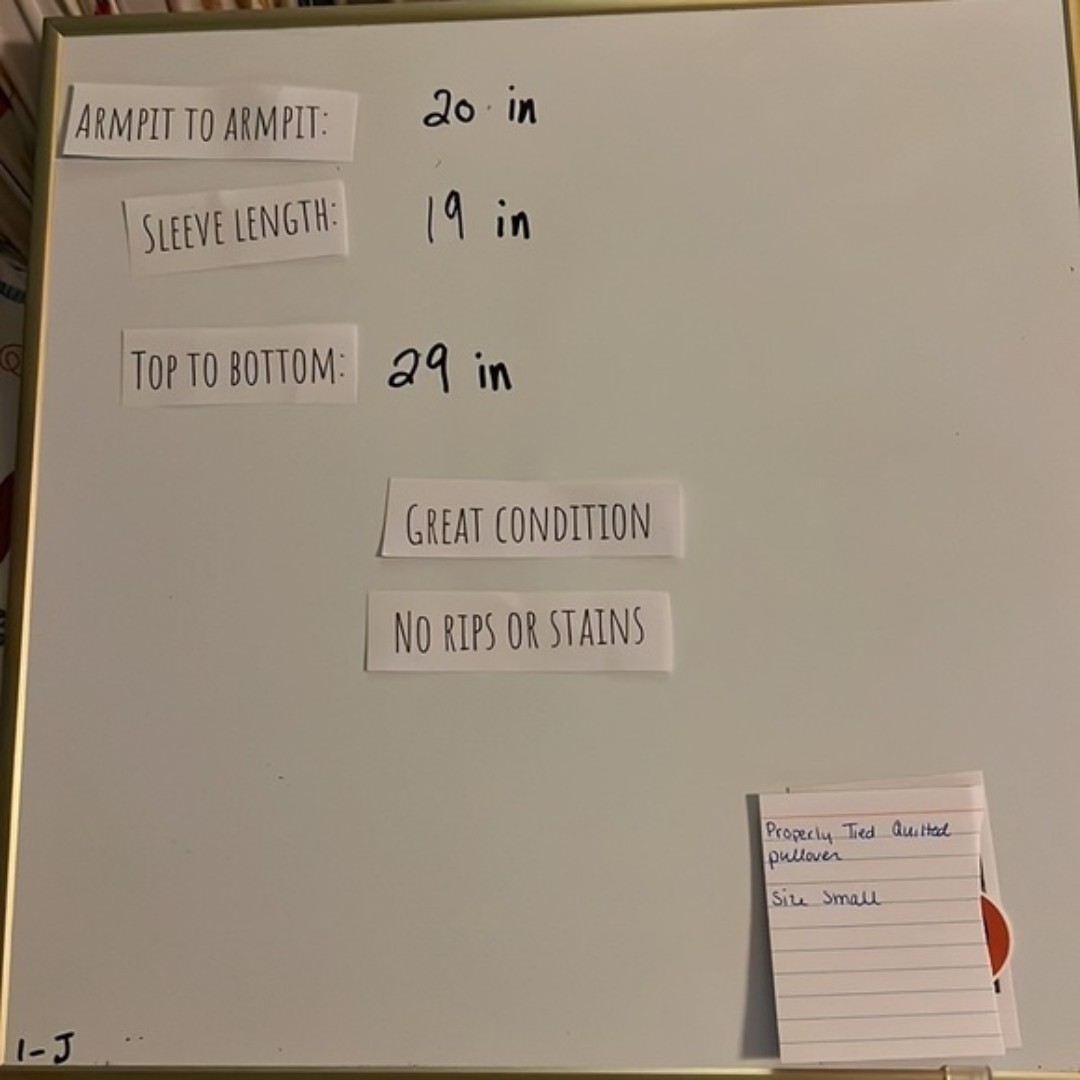 ARMPIT TO ARMPIT: 20 in
SLEEVE LENGTH: 19 in
TOP TO BOTTOM: 29 in
GREAT CONDITION
NO RIPS OR STAINS
Properly Tied Quilted
pullover
Size Small
1-J